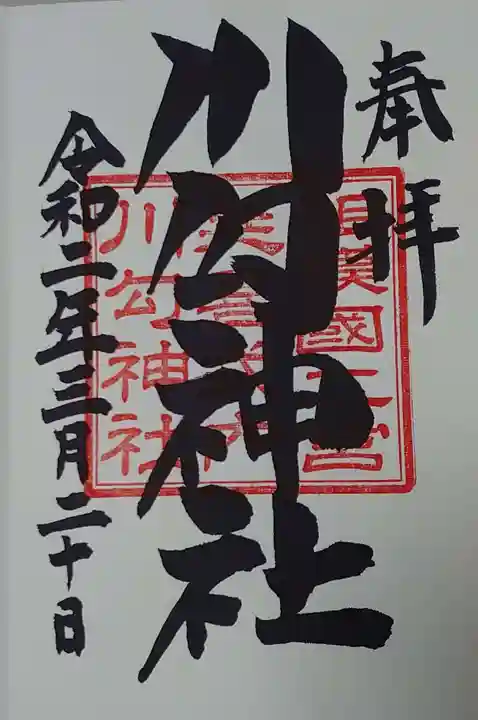 奉拝
川勾神社
令和二年三月二十日
相模國二宮
川勾神社